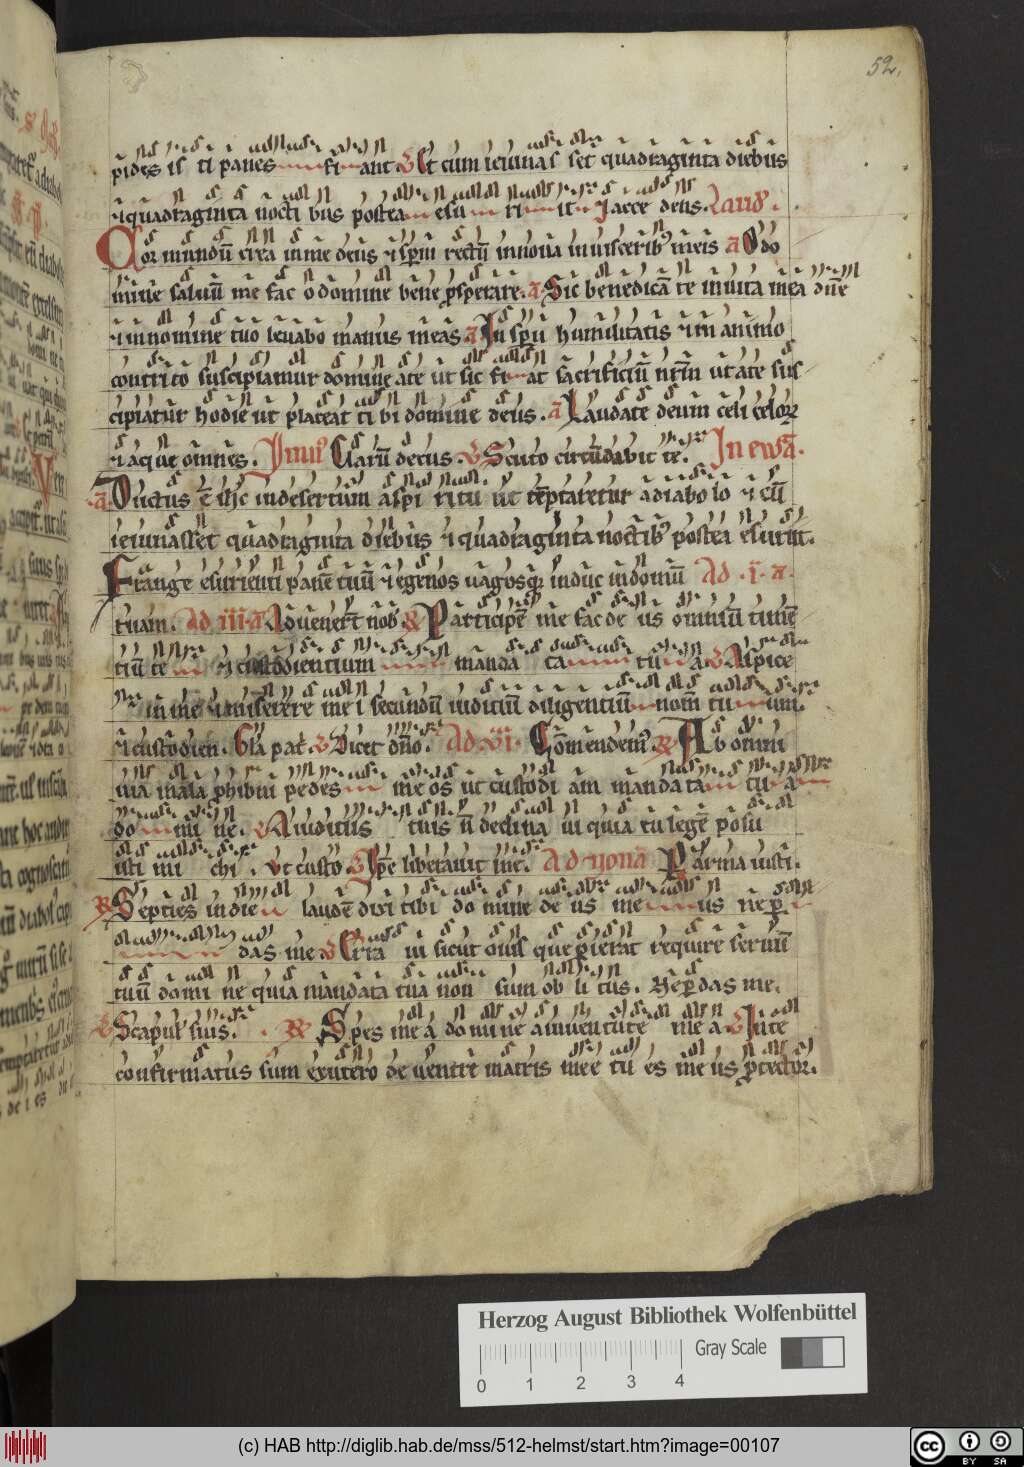 52.
pides isti panes fiant V Et cum ieiunasset quadraginta diebus
⁊ quadraginta nocti bus postea esu ri it Iacce deus Laud'.
Cor mundū crea in me deus ⁊ spm̄ rectū innoua in visceribꝰ meis a O do
mine saluū me fac o domine bene ꝓsperare. a Sic benedicā te in uita mea dn̄e
⁊ in nomine tuo leuabo manus meas a In spū humilitatis ⁊ in animo
contrito suscipiamur domine a te ut sic fi at sacrificiū nr̄m ut a te sus
cipiatur hodie ut placeat ti bi domine deus. a Laudate deum celi celoꝝ
⁊ aque omnes. Ymnꝰ Clarū decus. V Scuto circūdabit te. In ewā.
a Ductus ē ihc in desertum a spi ritu ut tēptaretur a diabo lo ⁊ cū
ieiunasset quadraginta diebus ⁊ quadraginta noctibꝰ postea esuriit.
Frange esurienti panē tuū ⁊ egenos uagosqꝫ induc in domū Ad .i. a.
tuam. Ad iii. a Aduenert̄ nob̄ R Participē me fac de us omniū timē
tiū te ⁊ custodientium manda ta tu a V Aspice
in me ⁊ miserere me i secundū iudiciū diligentiū nom̄ tu um.
⁊ custodien. Gl̄a pat̄. V Dicet dn̄o. Ad .vi. Com̄endemꝰ. R Ab omni
uia mala ꝓhibui pedes me os ut custodi am mandata tu a
do mi ne. V A iudiciis tuis n̄ declina ui quia tu legē posu
isti mi chi. Ut custo. V Ip̄e liberauit me. Ad nonā Parma iusti.
R Septies in die laudē dixi tibi do mine de us me us ne ꝑ
das me V Erra ui sicut ouis que perierat require seruū
tuū domi ne quia mandata tua non sum ob li tus. Ne ꝑdas me.
V Scapul' suis. R Spes me a domine a iuuentute me a V In te
confirmatus sum ex utero de uentre matris mee tu es me us ꝓtector.
Herzog August Bibliothek Wolfenbüttel
Gray Scale
0 1 2 3 4
(c) HAB http://diglib.hab.de/mss/512-helmst/start.htm?image=00107
cc BY SA